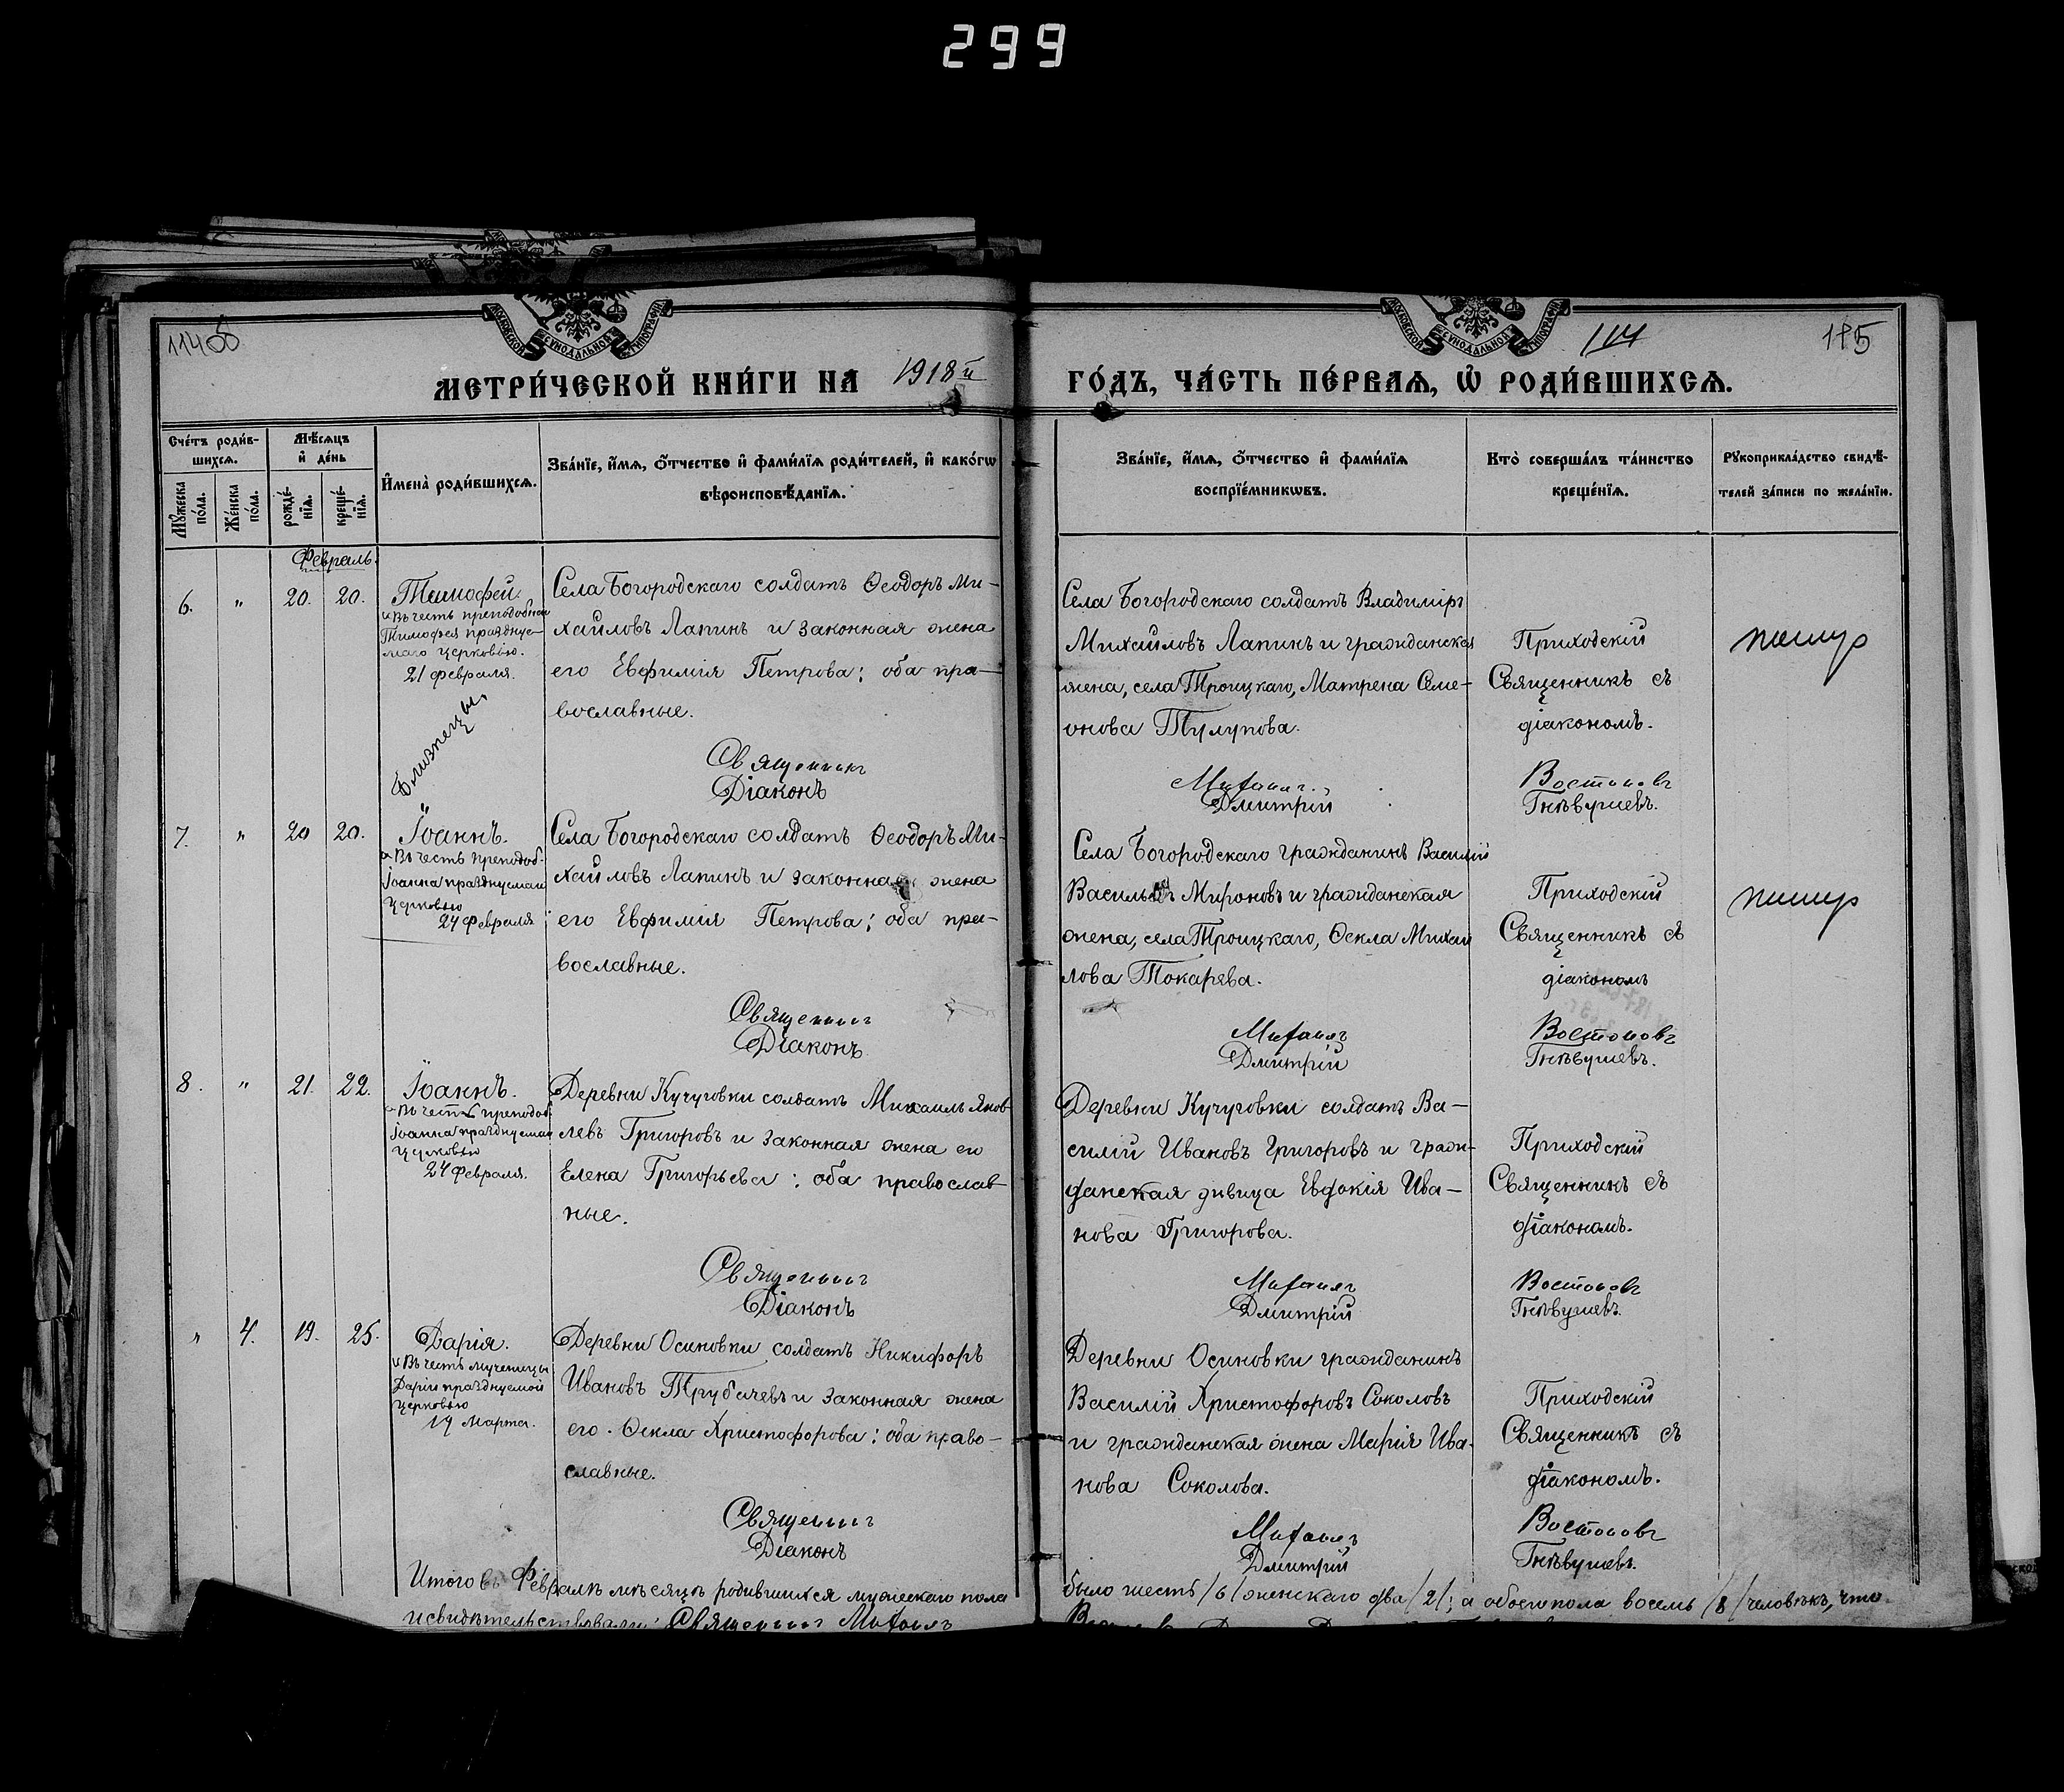 299
МОСКОВСКОЙ СѴНОДАЛЬНОЙ ТИПОГРАФІИ
МОСКОВСКОЙ СѴНОДАЛЬНОЙ ТИПОГРАФІИ
114
115
МЕТРИ́ЧЕСКОЙ КНИ́ГИ НА 1918й ГО́ДЪ, ЧА́СТЬ ПЕ́РВАѦ, Ѡ҆ РОДИ́ВШИХСѦ.
Сче́тъ роди́в-
шихсѧ.
Мѣ́сѧцъ
и҆ де́нь
Мꙋ́жеска
по́ла.
Же́нска
по́ла.
рожде́-
нїѧ.
креще́-
нїѧ.
И҆мена̀ роди́вшихсѧ.
Зва́нїе, и҆́мѧ, ѻ҆́тчество и҆ фами́лїѧ роди́телей, и҆ како́гѡ
вѣроисповѣ́данїѧ.
Зва́нїе, и҆́мѧ, ѻ҆́тчество и҆ фами́лїѧ
воспрїе́мникѡвъ.
Кто̀ соверша́лъ та́инство
креще́нїѧ.
Рꙋкоприкла́дство свидѣ́-
телей за́писи по жела́нїю.
Февраль.
6. " 20. 20.
Тимофей.
Въ честь преподобнаго
Тимофея празднуе-
маго церковію.
21 февраля.
Близнецы.
Села Богородскаго солдатъ Ѳеодоръ Ми-
хайловъ Лапинъ и законная жена
его Евфимія Петрова; оба пра-
вославные.
Священникъ
Діаконъ
Села Богородскаго солдатъ Владиміръ
Михайловъ Лапинъ и гражданская
жена, села Троицкаго, Матрена Семе-
онова Тулупова.
Михаилъ
Дмитрій
Приходскій
Священникъ съ
діакономъ.
Востоковъ
Гнѣвушевъ.
7. " 20 20.
Іоаннъ.
Въ честь преподоб.
Іоанна празднуемаго
церковью
24 февраля
Села Богородскаго солдатъ Ѳеодоръ Ми-
хайловъ Лапинъ и законная жена
его Евфимія Петрова; оба пра-
вославные.
Священникъ
Діаконъ
Села Богородскаго гражданинъ Василій
Васильевъ Мироновъ и гражданская
жена, села Троицкаго, Ѳекла Михаи
лова Токарева.
Михаилъ
Дмитрій
Приходскій
Священникъ съ
діакономъ
Востоковъ
Гнѣвушевъ.
8. " 21. 22.
Іоаннъ.
Въ честь преподоб.
Іоанна празднуемаго
церковью
24 февраля.
Деревни Кучуговки солдатъ Михаилъ Яков
левъ Григоровъ и законная жена его
Елена Григорьева; оба православ
ные.
Священникъ
Діаконъ
Деревни Кучуговки солдатъ Ва-
силій Ивановъ Григоровъ и граж-
данская дѣвица Евдокія Ива-
нова Григорова.
Михаилъ
Дмитрій
Приходскій
Священникъ съ
діакономъ.
Востоковъ
Гнѣвушевъ.
" 4. 19. 25.
Дарія.
Въ честь мученицы
Даріи празднуемой
церковью
19 Марта.
Деревни Осиновки солдатъ Никифоръ
Ивановъ Трубачевъ и законная жена
его Ѳекла Христофорова; оба право-
славные.
Священникъ
Діаконъ
Деревни Осиновки гражданинъ
Василій Христофоровъ Соколовъ
и гражданская жена Марія Ива-
нова Соколова.
Михаилъ
Дмитрій
Приходскій
Священникъ съ
діакономъ.
Востоковъ
Гнѣвушевъ.
Итого въ Февралѣ мѣсяцѣ родившихся мужескаго пола было шесть /6/ женскаго два /2/; а обоего пола восемь /8/ человѣкъ, что
и свидѣтельствовали: Священникъ Михаилъ